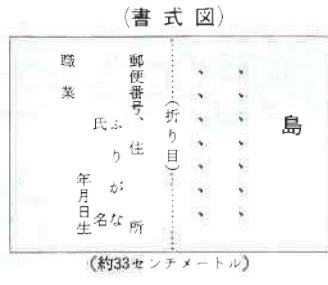 (書式図)
島
、、、、、、、
、、、、、、、
(折り目)
郵便番号、住所
ふりがな
氏名
年月日生
職業
(約33センチメートル)